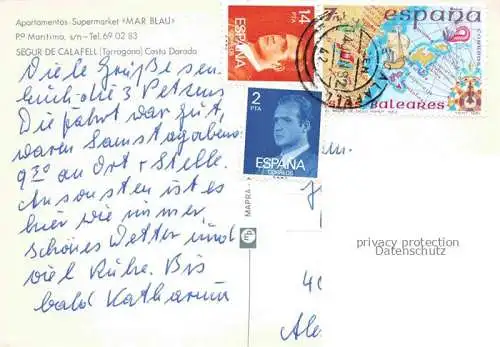 Apartamentos - Supermarket «MAR BLAU»
Pº Marítimo, s/n - Tel. 69 02 83
SEGUR DE CALAFELL (Tarragona) Costa Dorada
Viele Grüße sen-
den die 3
Die Fahrt war gut,
waren Samstagabend
9³⁰ an Ort + Stelle.
Ansonsten ist es
hier wie immer,
schönes Wetter und
viel Ruhe. Bis
bald Katharina
14
PTA
ESPAÑA
2
PTA
ESPAÑA
CORREOS
españa
CORREOS
Baleares
MAPRA
privacy protection
Datenschutz